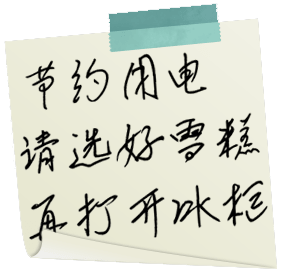 节约用电
请选好雪糕
再打开冰柜